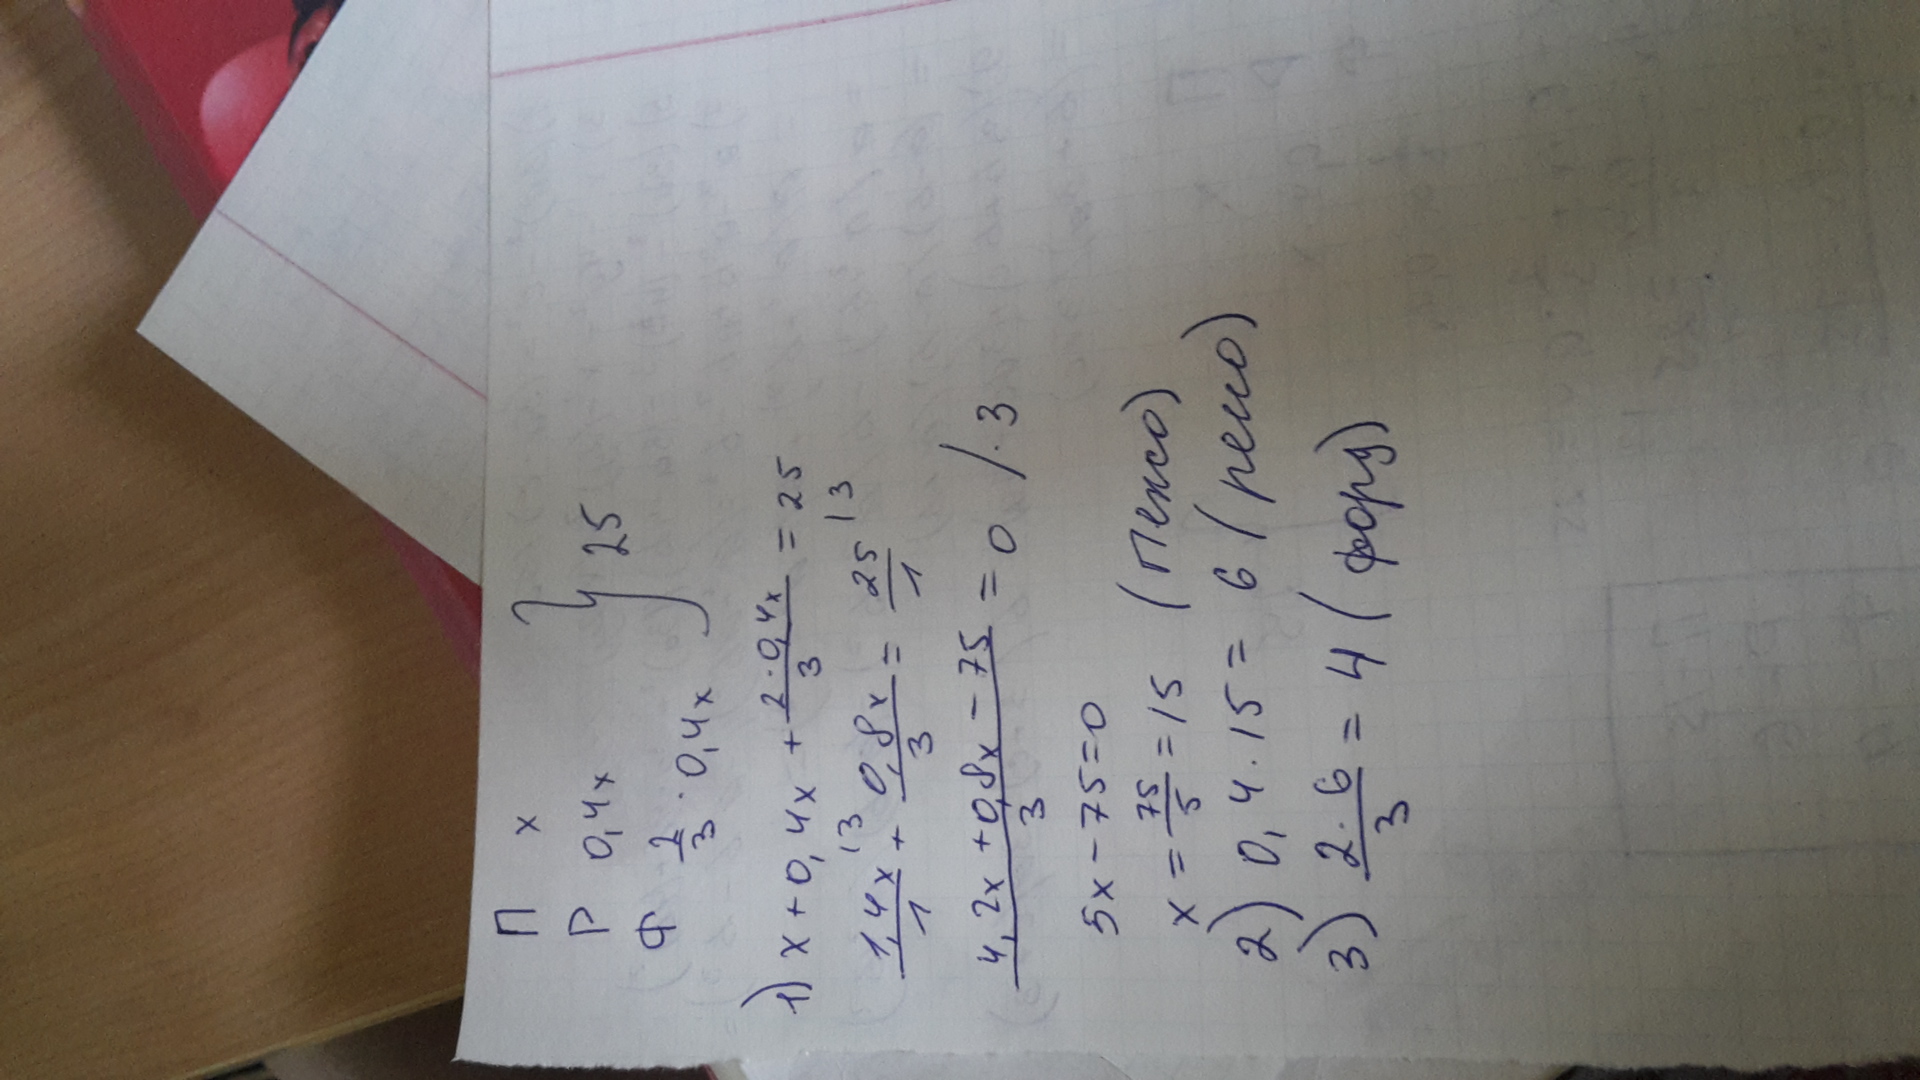 П x
Р 0,4x } 25
Ф 2/3 · 0,4x
1) x + 0,4x + 2·0,4x/3 = 25
1,4x/1 |3 + 0,8x/3 = 25/1 |3
4,2x + 0,8x - 75/3 = 0 / · 3
5x - 75 = 0
x = 75/5 = 15 (Пежо)
2) 0,4 · 15 = 6 (рено)
3) 2·6/3 = 4 (форд)